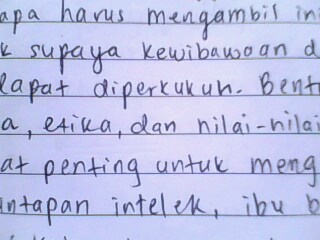 apa harus mengambil ini
k supaya kewibawaan d
dapat diperkukuh. Bent
a, etika, dan nilai-nilai
at penting untuk meng
antapan intelek, ibu b